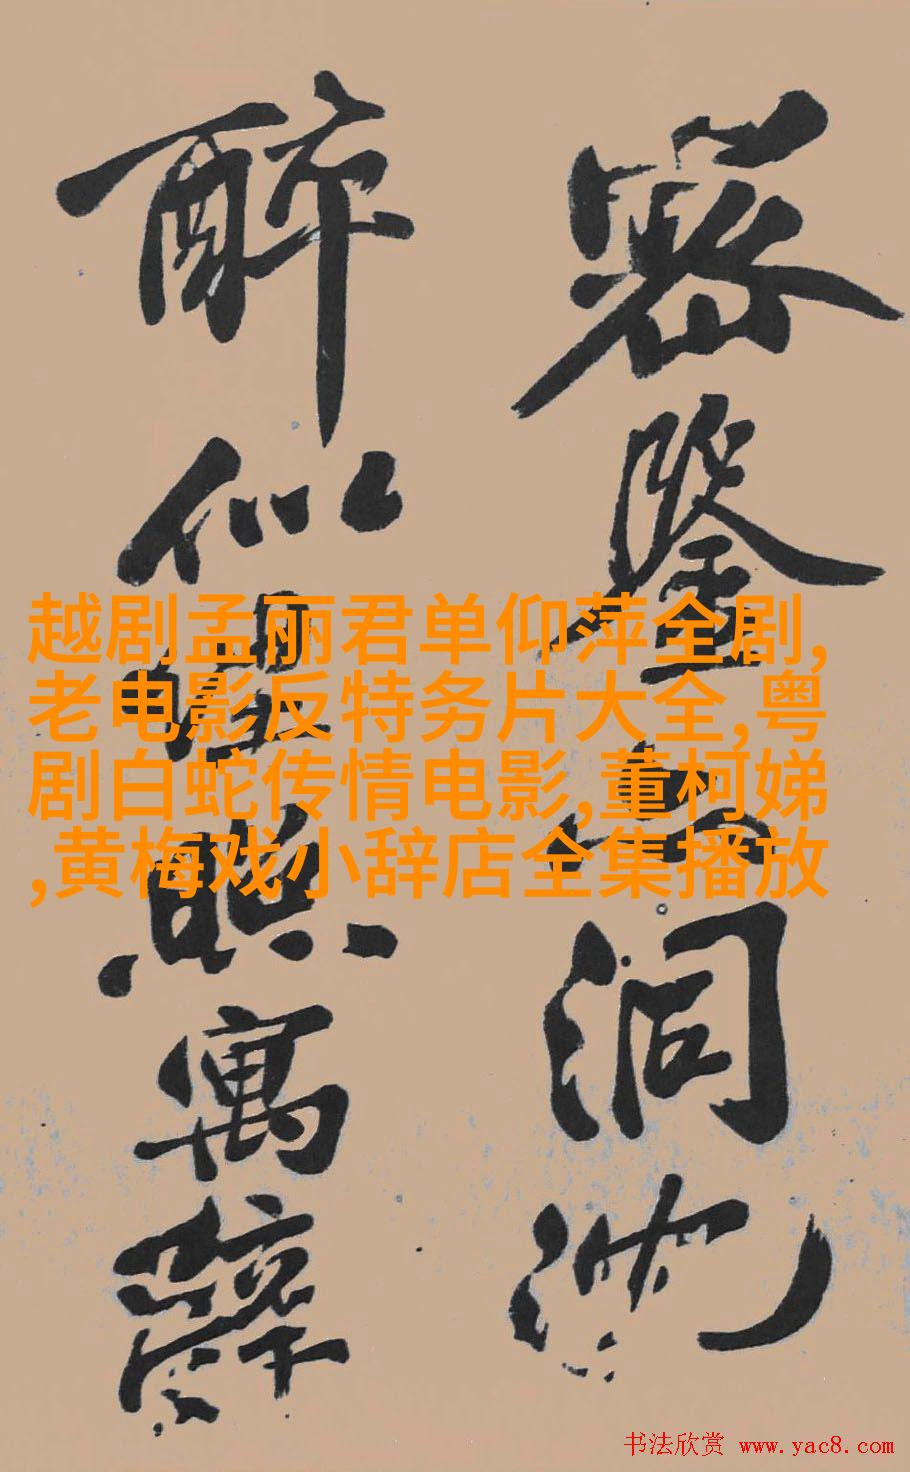 密鉴
洞沈
醉似
照寓辞
越剧孟丽君单仰萍全剧,
老电影反特务片大全,粤
剧白蛇传情电影,董柯娣
,黄梅戏小辞店全集播放
书法欣赏 www.yac8.com